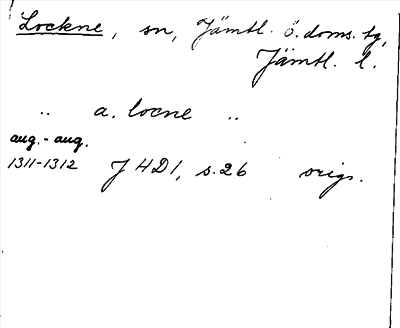 Lockne, sn, Jämtl. ö. doms. tg,
Jämtl. l.
.. a. locne ..
aug.-aug.
1311-1312 J 4D1, s. 26 origs.